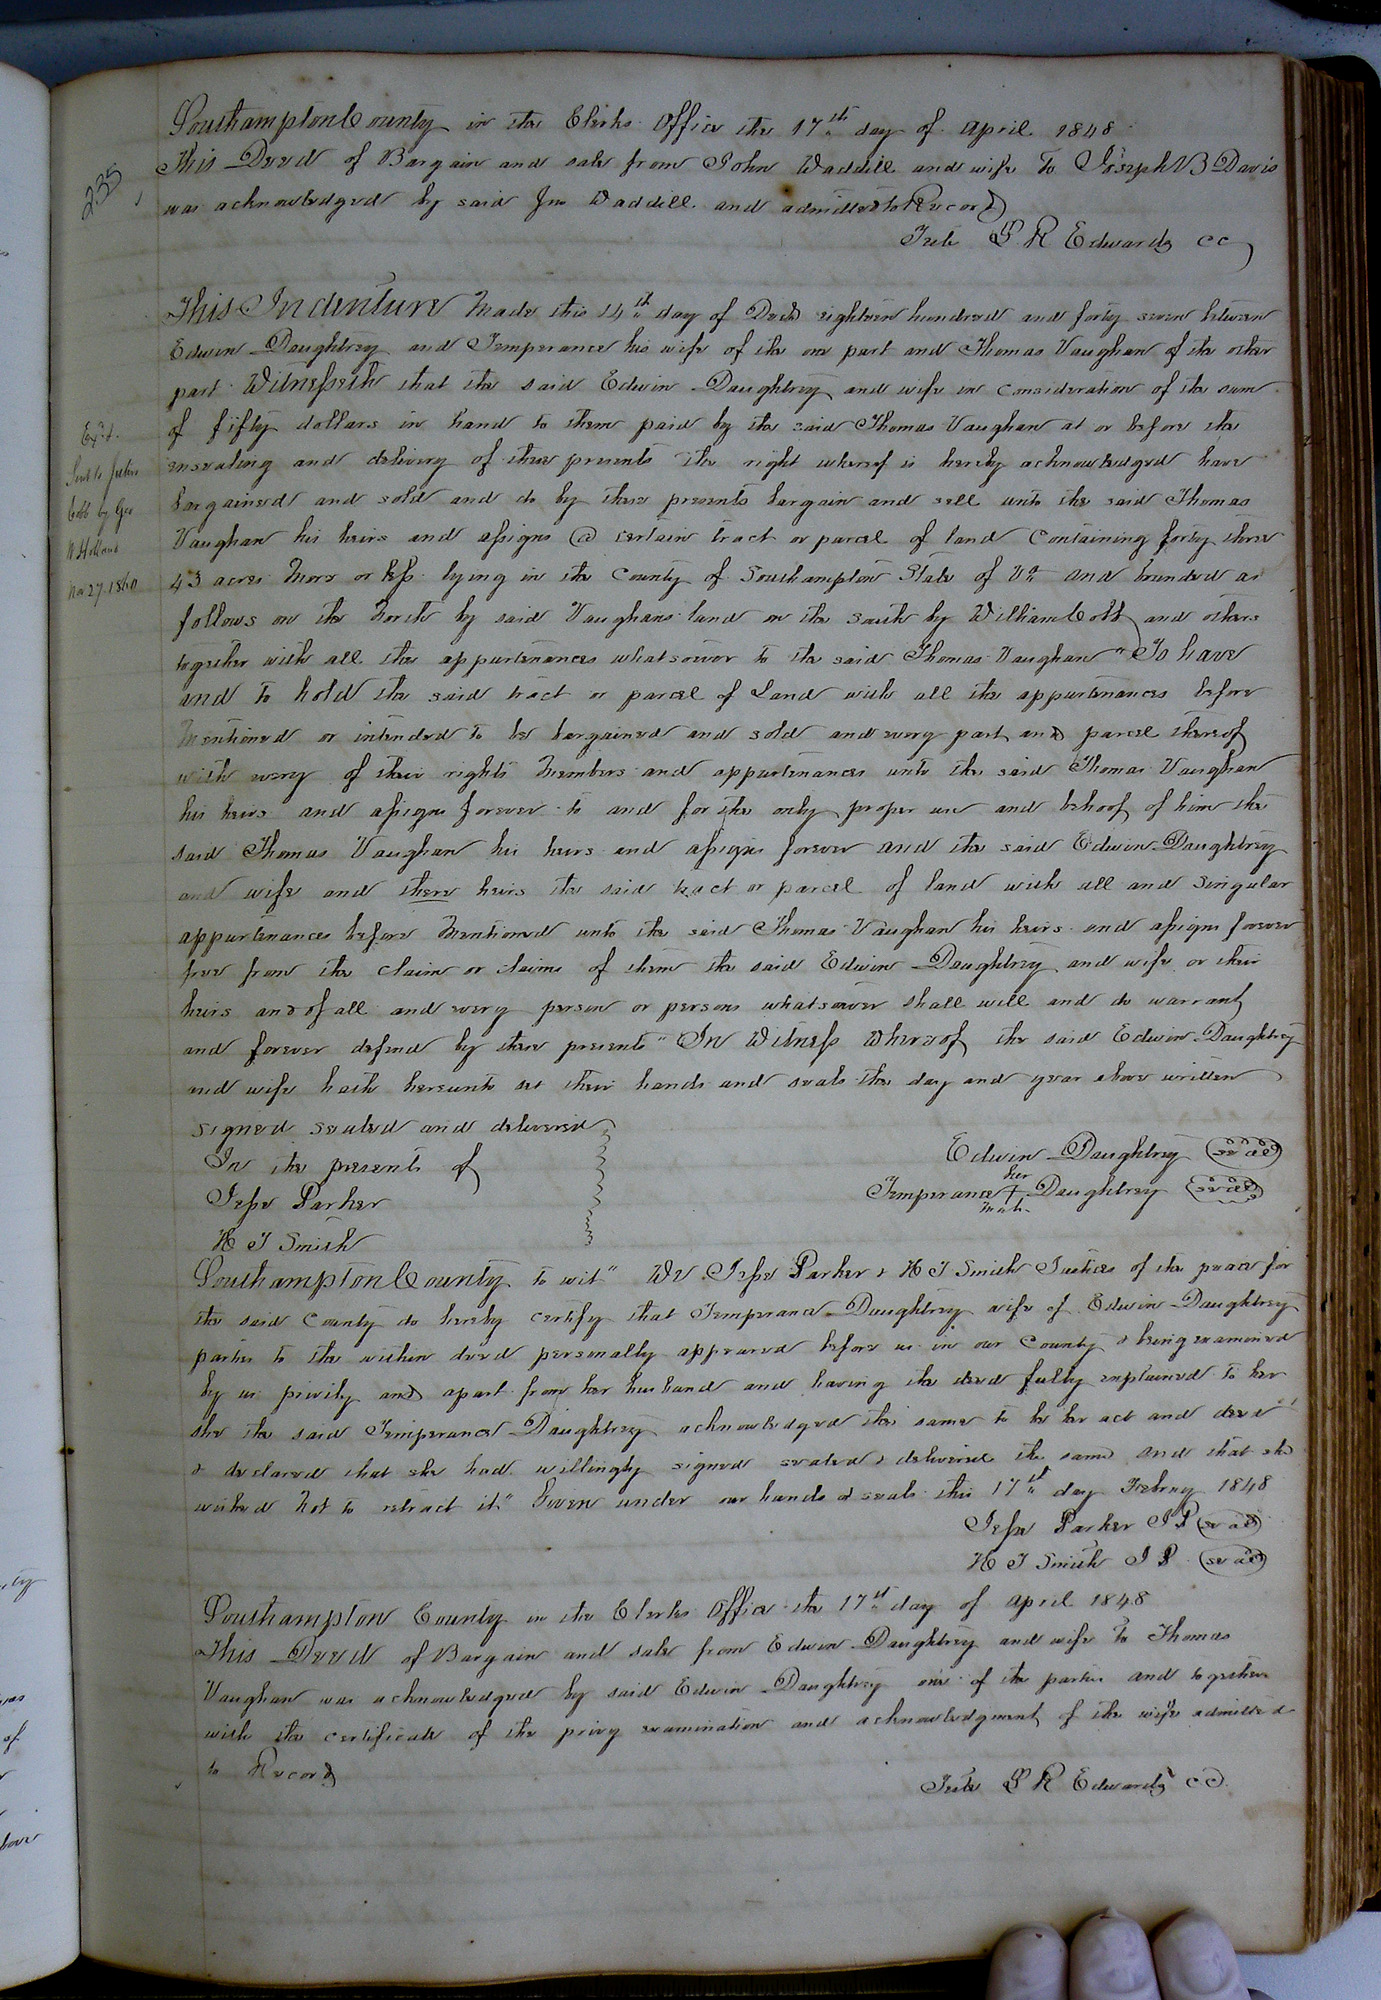 235
Southampton County in the Clerks Office the 17th day of April 1848
This Deed of Bargain and sale from John Waddill and wife to Joseph B Davis
was acknowledged by said Jno Waddill and admitted to Record
Teste L R Edwards CC
This Indenture Made this 14th day of Decr eighteen hundred and forty seven between
Edwin Daughtrey and Temperance his wife of the one part and Thomas Vaughan of the other
part Witnesseth that the said Edwin Daughtrey and wife in consideration of the sum
of fifty dollars in hand to them paid by the said Thomas Vaughan at or before the
ensealing and delivery of these presents the right whereof is hereby acknowledged have
bargained and sold and do by these presents bargain and sell unto the said Thomas
Vaughan his heirs and assigns @ certain tract or parcel of land Containing forty three
43 acres More or less lying in the County of Southampton State of Va and bounded as
follows on the North by said Vaughans land on the South by William Cobb and others
together with all the appurtenances whatsoever to the said Thomas Vaughan " To have
and to hold the said tract or parcel of Land with all the appurtenances before
Mentioned or intended to be bargained and sold and every part and parcel thereof
with every of their rights Members and appurtenances unto the said Thomas Vaughan
his heirs and assigns forever to and for the only proper use and behoof of him the
said Thomas Vaughan his heirs and assigns forever and the said Edwin Daughtrey
and wife and there heirs the said tract or parcel of land with all and singular
appurtenances before Mentioned unto the said Thomas Vaughan his heirs and assigns forever
free from the claim or claims of them the said Edwin Daughtrey and wife or their
heirs and of all and every person or persons whatsoever shall will and do warrant
and forever defend by these presents " In Witness Whereof the said Edwin Daughtrey
and wife hath hereunto set their hands and seals the day and year above written
Ex'd.
Sent to
Cobb by Geo
W Holland
Nov 27. 1860
signed sealed and delivered
In the presents of
Jesse Parker
H T Smith
Edwin Daughtrey seal
her
Temperance + Daughtrey seal
mark
Southampton County to wit " We Jesse Parker & H T Smith Justices of the peace for
the said County do hereby certify that Temperance Daughtrey wife of Edwin Daughtrey
parties to the within deed personally appeared before us in our County & being examined
by us privily and apart from her husband and having the deed fully explained to her
she the said Temperance Daughtrey acknowledged the same to be her act and deed
& declared that she had willingly signed sealed & delivered the same and that she
wished Not to retract it " Given under our hands & seals this 17th day Febuy 1848
Jesse Parker J P seal
H T Smith J P seal
Southampton County in the Clerks Office the 17th day of April 1848
This Deed of Bargain and sale from Edwin Daughtrey and wife to Thomas
Vaughan was acknowledged by said Edwin Daughtrey one of the parties and together
with the certificate of the privy examination and acknowledgment of the wife admitted
to Record
Teste L R Edwards CC